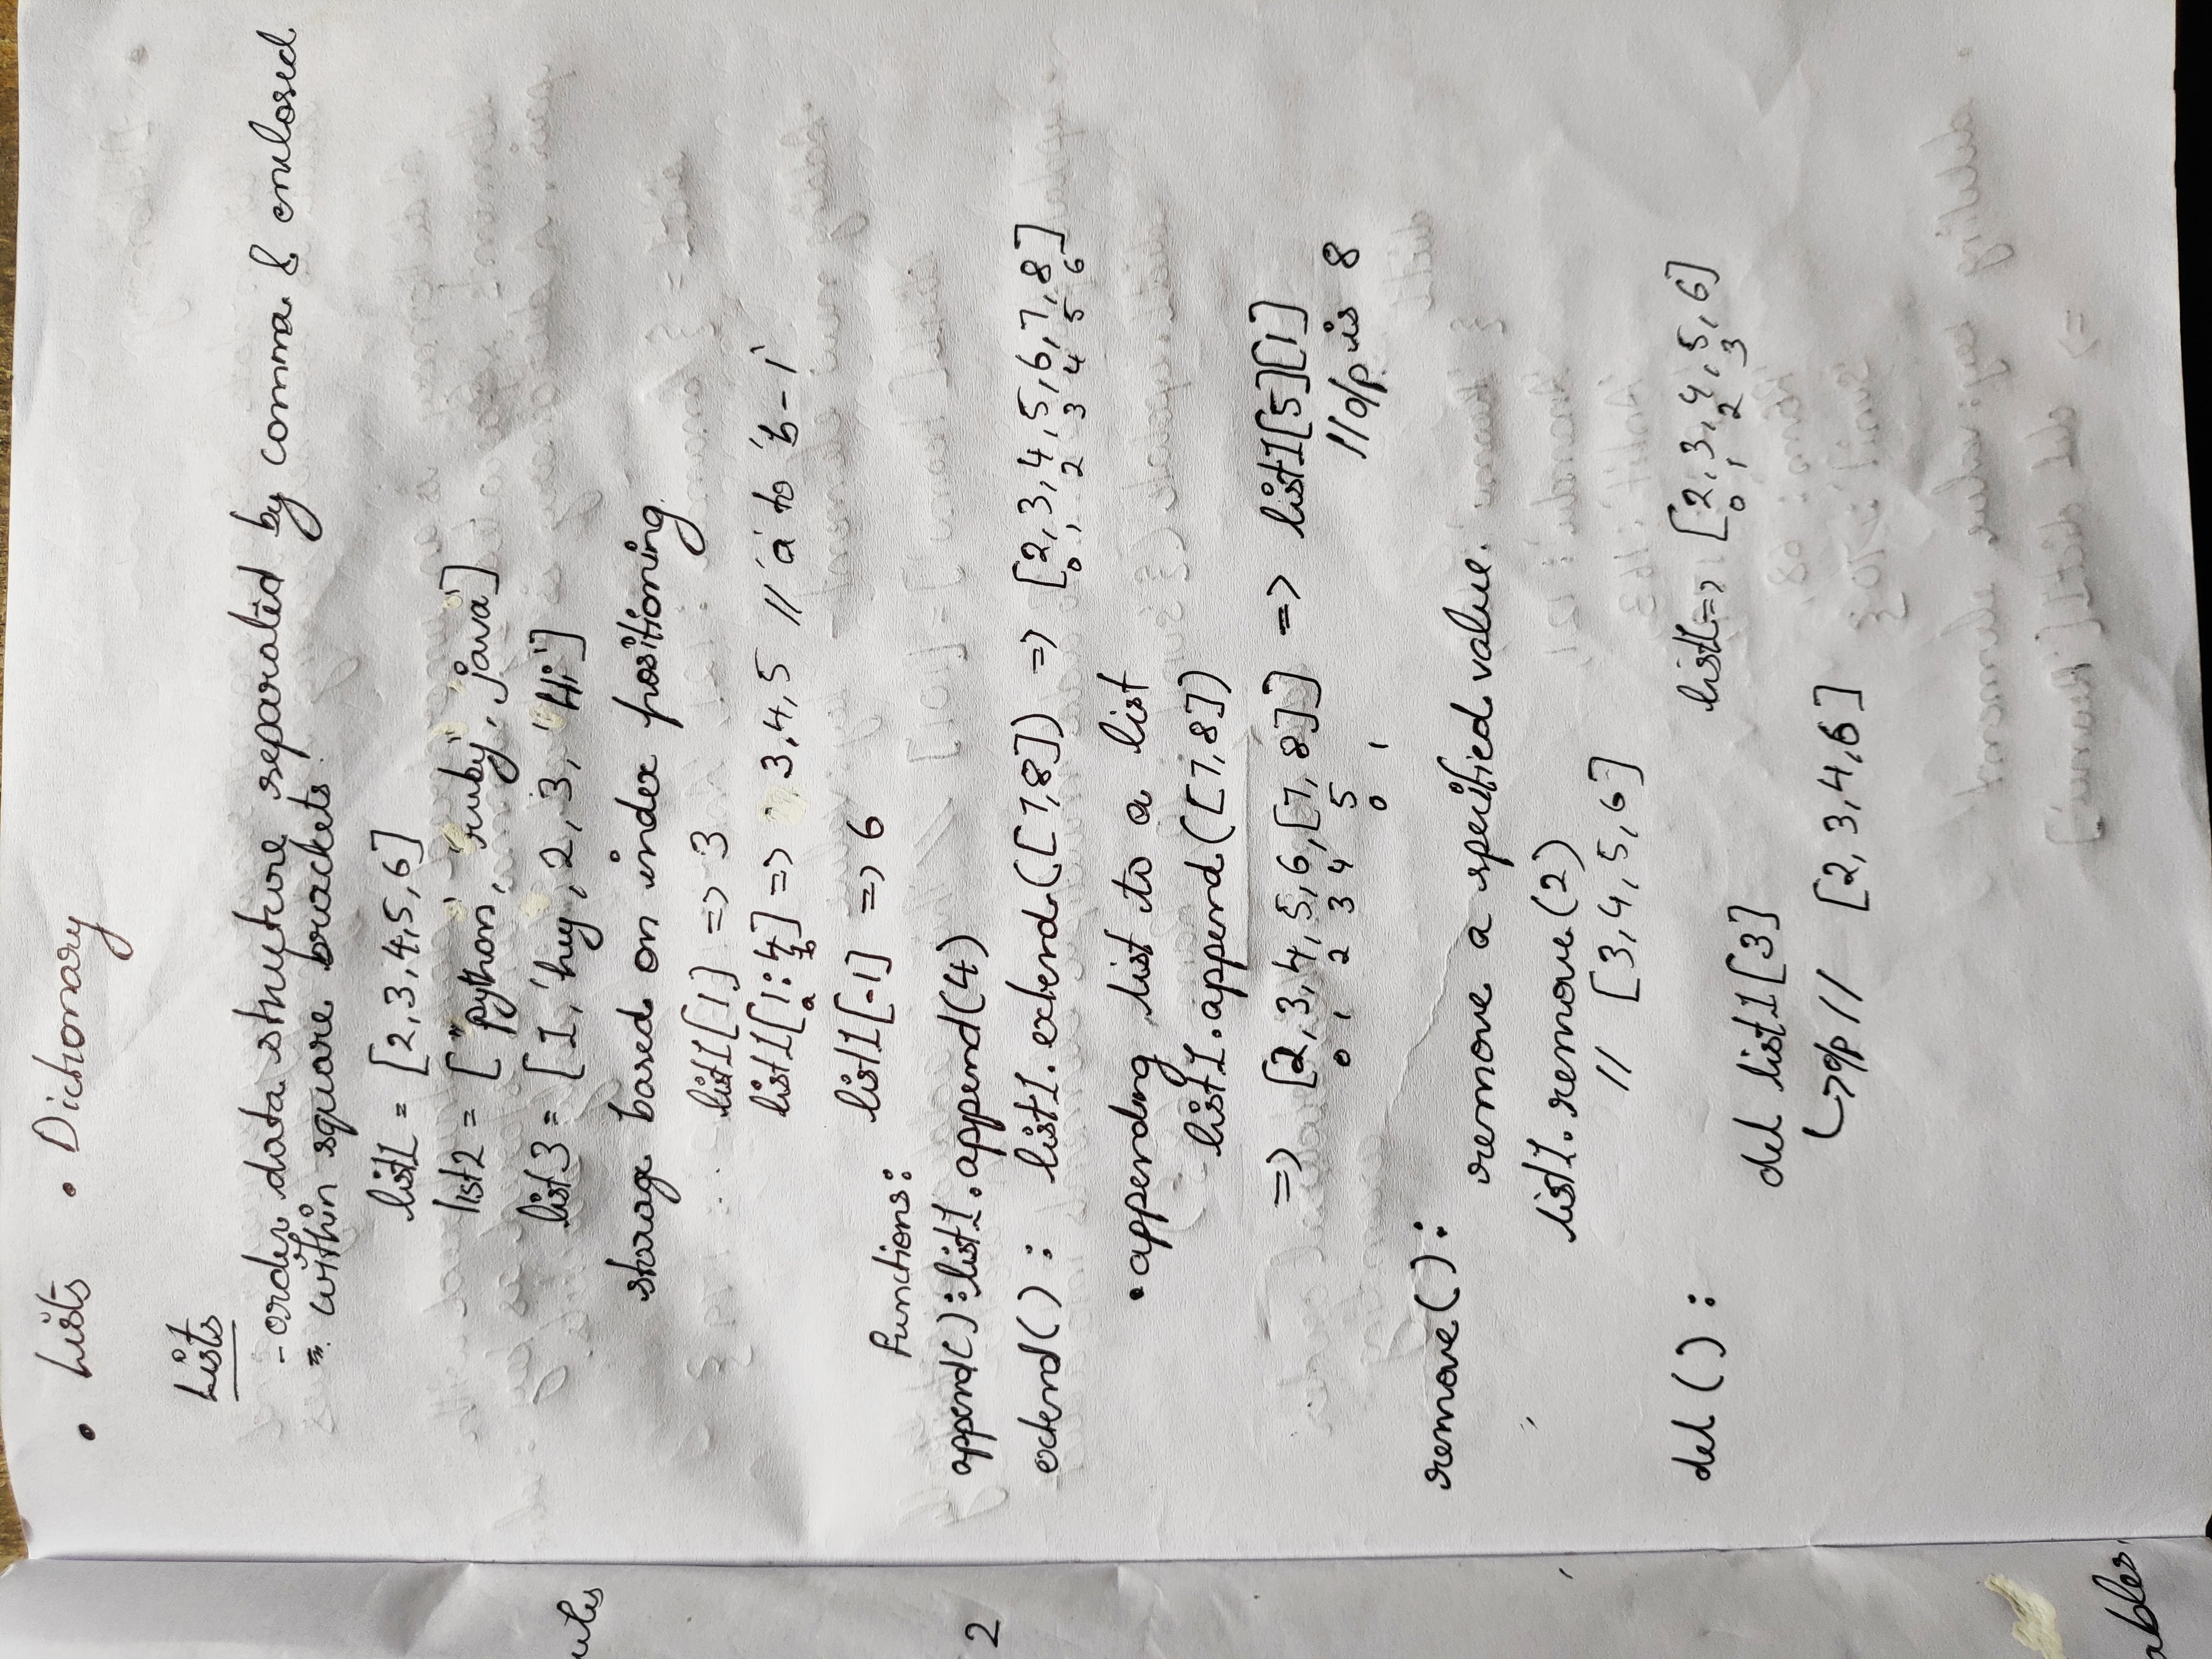 • Lists • Dictionary
Lists
- order data structure separated by comma & enclosed
within square brackets.
list1 = [2,3,4,5,6]
list2 = ["python', 'ruby", 'java']
list3 = [1, 'hey', 2, 3, 'Hi']
storage based on index positioning.
list1[1] => 3
list1[1:4] => 3,4,5 // 'a' to 'b-1'
a b
list1[-1] => 6
Functions:
append(): list1.append(4)
extend() : list1.extend([7,8]) => [2,3,4,5,6,7,8]
0 1 2 3 4 5 6
• appending list to a list
list1.append([7,8])
=> [2,3,4,5,6,[7,8]] => list1[5][1]
0 1 2 3 4 5 // o/p is 8
0 1
remove():
remove a specified value.
list1.remove(2)
// [3,4,5,6]
del() : list1=> [2,3,4,5,6]
0 1 2 3
del list1[3]
↳ o/p // [2,3,4,6]
2
ables.